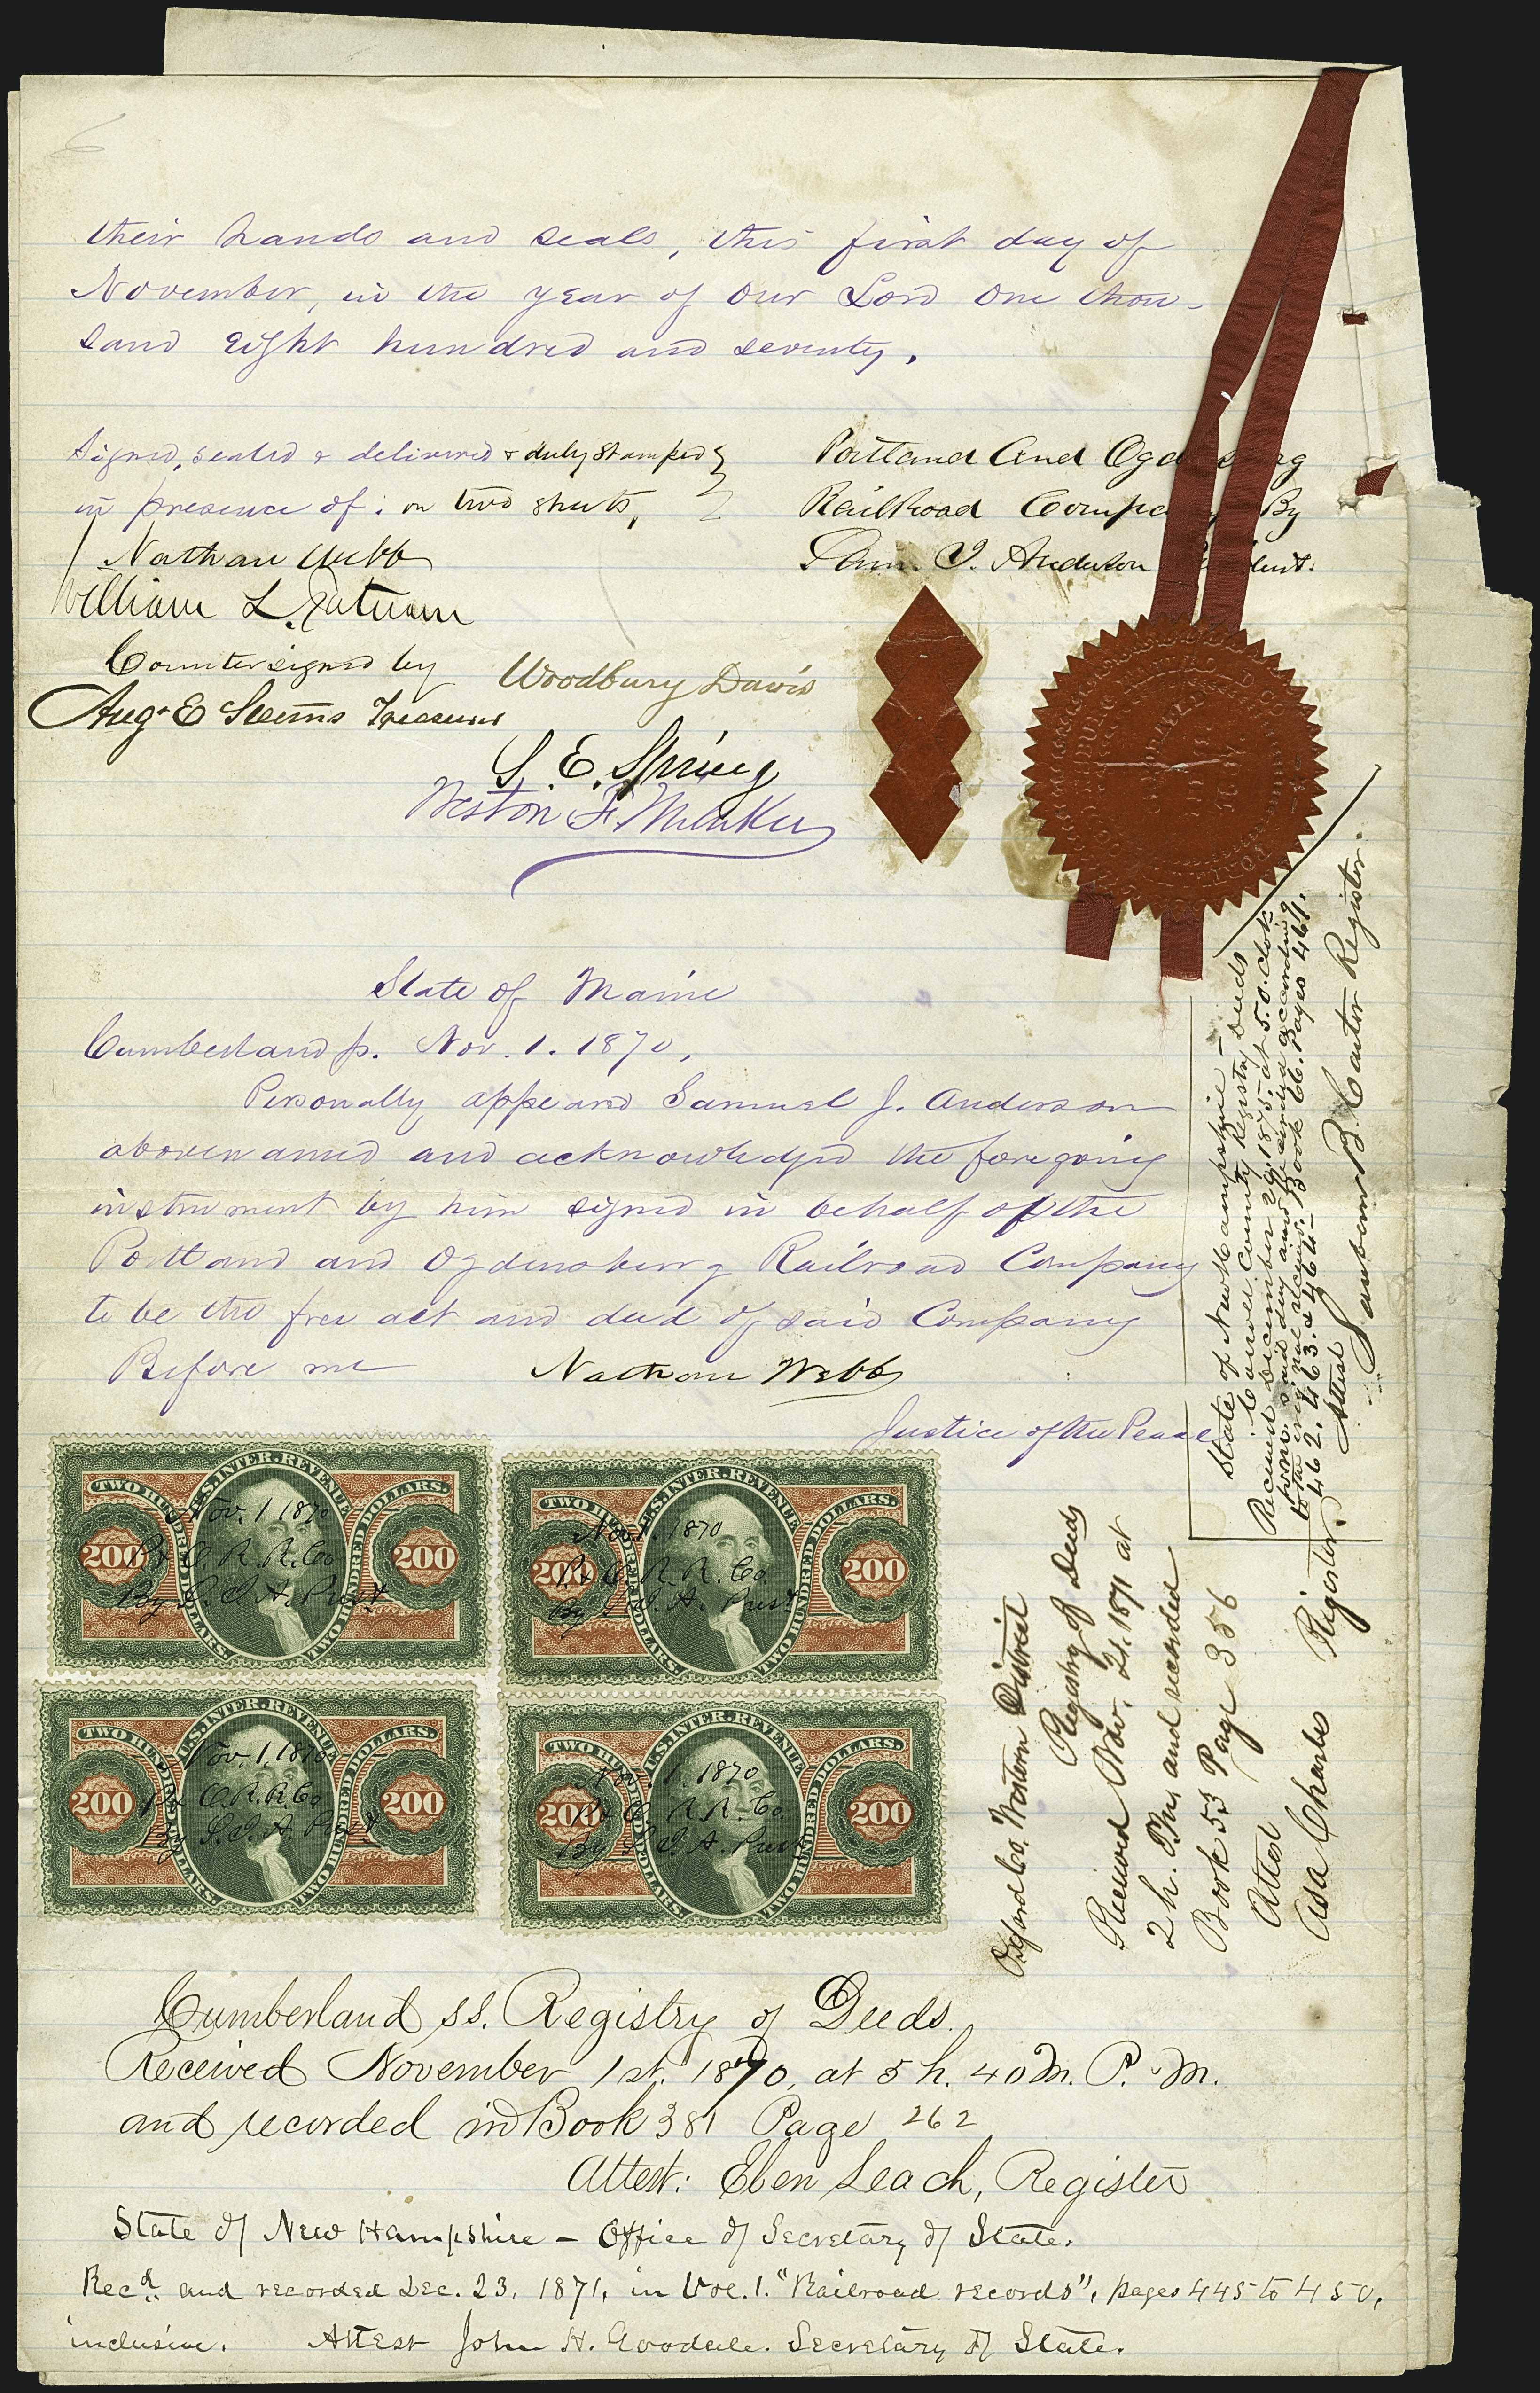 their hands and seals, this first day of
November, in the year of our Lord one thou-
sand eight hundred and seventy.
Signed, sealed & delivered & duly stamped
in presence of: on two sheets,
Nathan Webb
William L. Putnam
Countersigned by
Aug. E Stevens Treasurer
Portland And Ogd
Railroad Compa By
Sam. J. Anderson
Woodbury Davis
S. E. Spring
Weston F. Milliken
State of Maine
Cumberland ss. Nov. 1. 1870,
Personally appeared Samuel J. Anderson
abovenamed and acknowledged the foregoing
instrument by him signed in behalf of the
Portland and Ogdensburg Railroad Company
to be the free act and deed of said Company
Before me Nathan Webb
Justice of the Peace
U.S. INTER. REVENUE
TWO HUNDRED DOLLARS.
200 200
TWO HUNDRED DOLLARS.
Nov. 1 1870
P & O. R. R. Co
By S. J. A. Prest
U.S. INTER. REVENUE
TWO HUNDRED DOLLARS.
200 200
TWO HUNDRED DOLLARS.
Nov. 1. 1870
P. & O. R. R. Co.
By S. J. A. Prest
U.S. INTER. REVENUE
TWO HUNDRED DOLLARS.
200 200
TWO HUNDRED DOLLARS.
Nov. 1, 1870
P & O. R. R. Co
By S. J. A. Prest
U.S. INTER. REVENUE
TWO HUNDRED DOLLARS.
200 200
TWO HUNDRED DOLLARS.
Nov. 1. 1870
P & O. R. R. Co.
By S. J. A. Prest
State of New Hampshire -
Carroll County Registry Deeds
Received December 29, 1875, at 5. O. clok
p.m. said day and Recorded according
to the original Book 66. Pages 461.
462. 463. & 464
Attest
Sanborn B. Carter Register.
Oxford Co. Western District
Registry of Deeds
Received Nov. 21. 1871 at
2 h. P.M, and recorded
Book 53 Page 356
Attest
Asa Charles Register.
Cumberland ss. Registry of Deeds.
Received November 1st. 1870, at 5 h. 40 M. P. M.
and recorded in Book 381 Page 262
Attest: Eben Leach, Register
State of New Hampshire - Office of Secretary of State.
Recd. and recorded Dec. 23, 1871, in Vol. 1. "Railroad records", pages 445 to 450,
inclusive. Attest John H. Goodale. Secretary of State.